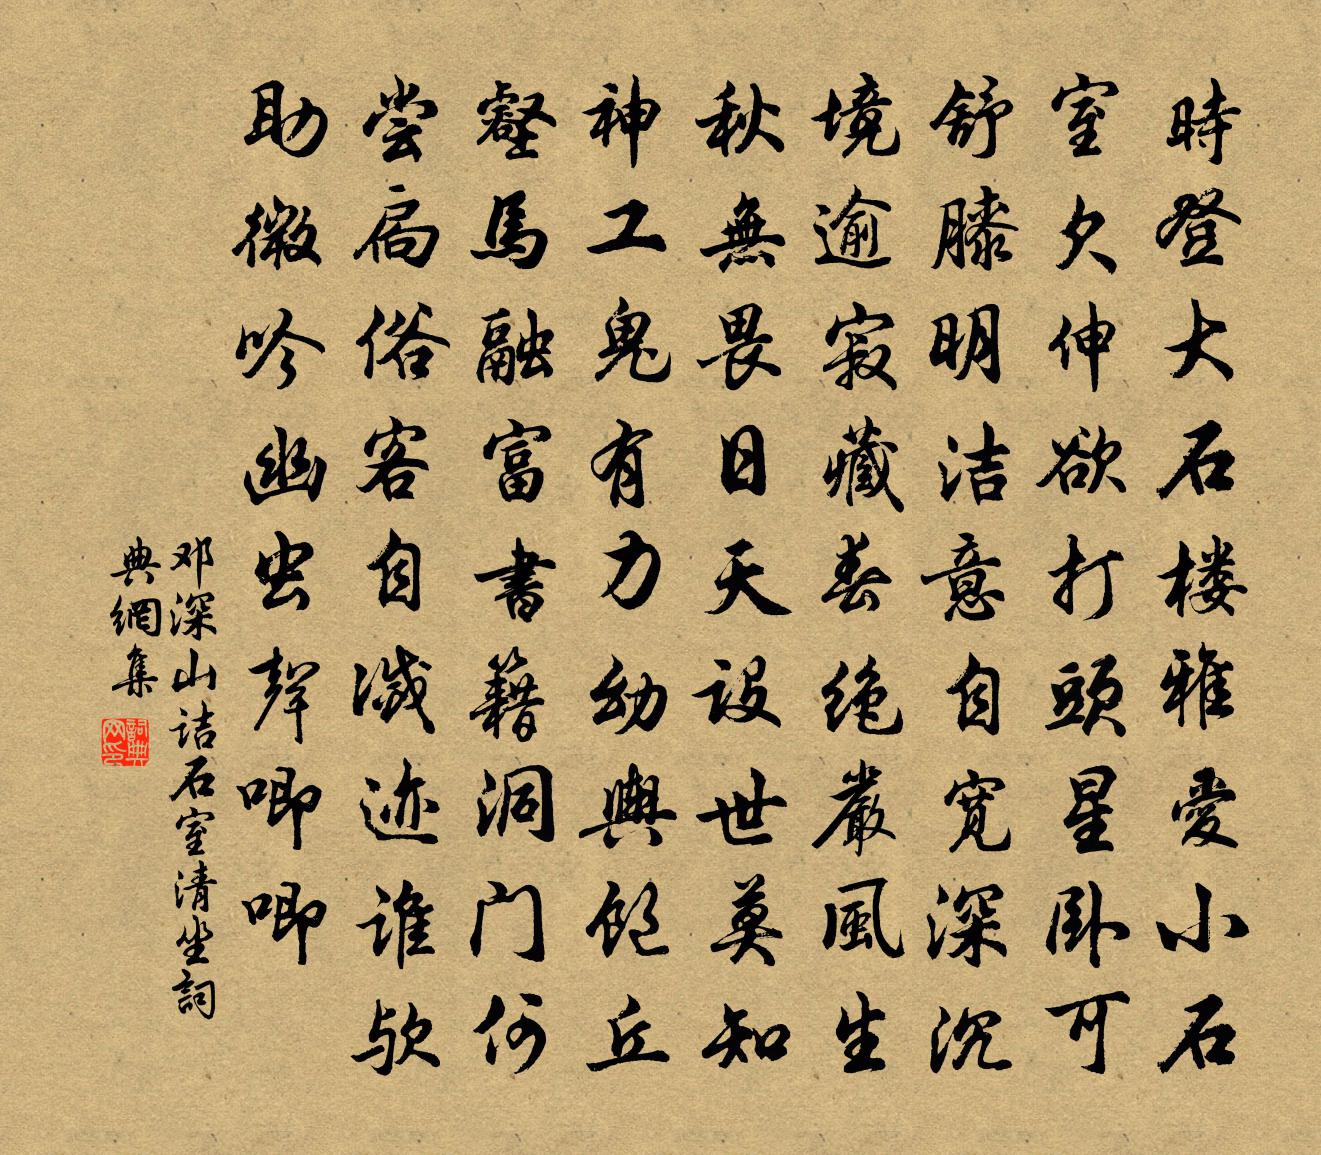 時登大石楼雅愛小石
室欠伸欲打頭星卧可
舒膝明洁意自寬深沉
境逾寂藏春绝嚴風生
秋無畏日天设世莫知
神工鬼有力幼輿飽丘
壑馬融富書籍洞门何
尝扃俗客自滅迹谁欤
助微吟幽虫聲唧唧
邓深山诘石室清坐詞
典網集
詞典网印